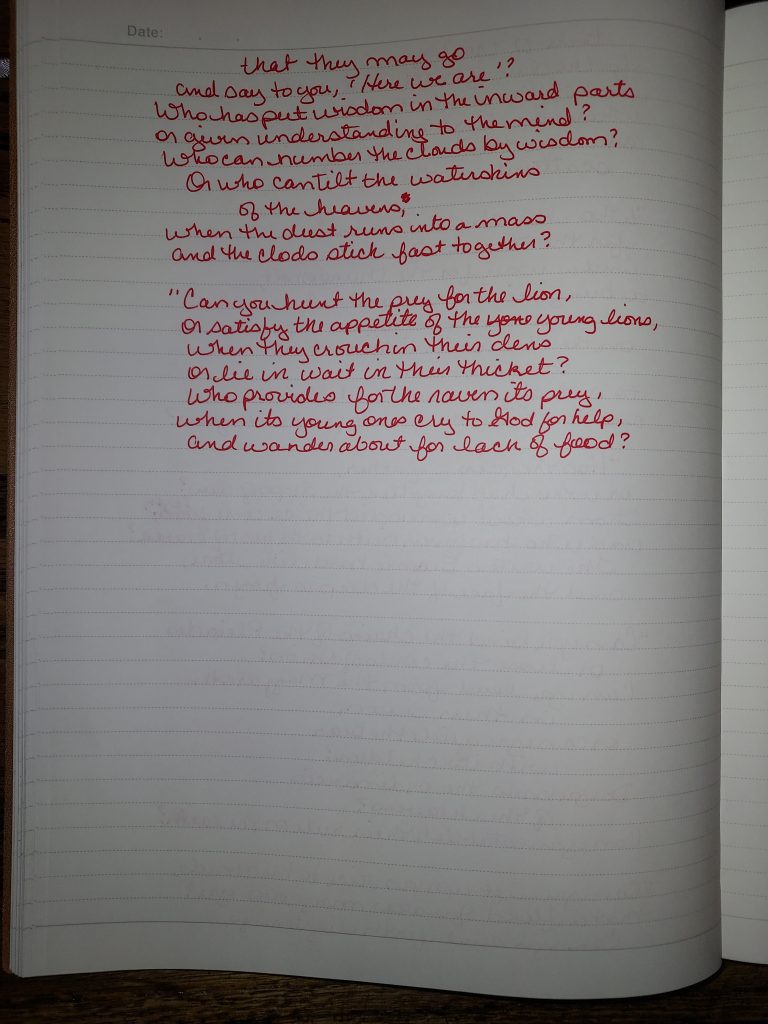 Date:
that they may go
and say to you, 'Here we are'?
Who has put wisdom in the inward parts
or given understanding to the mind?
Who can number the clouds by wisdom?
Or who can tilt the waterskins
of the heavens,
when the dust runs into a mass
and the clods stick fast together?
"Can you hunt the prey for the lion,
or satisfy the appetite of the yone young lions,
when they crouch in their dens
or lie in wait in their thicket?
Who provides for the raven its prey,
when its young ones cry to God for help,
and wander about for lack of food?